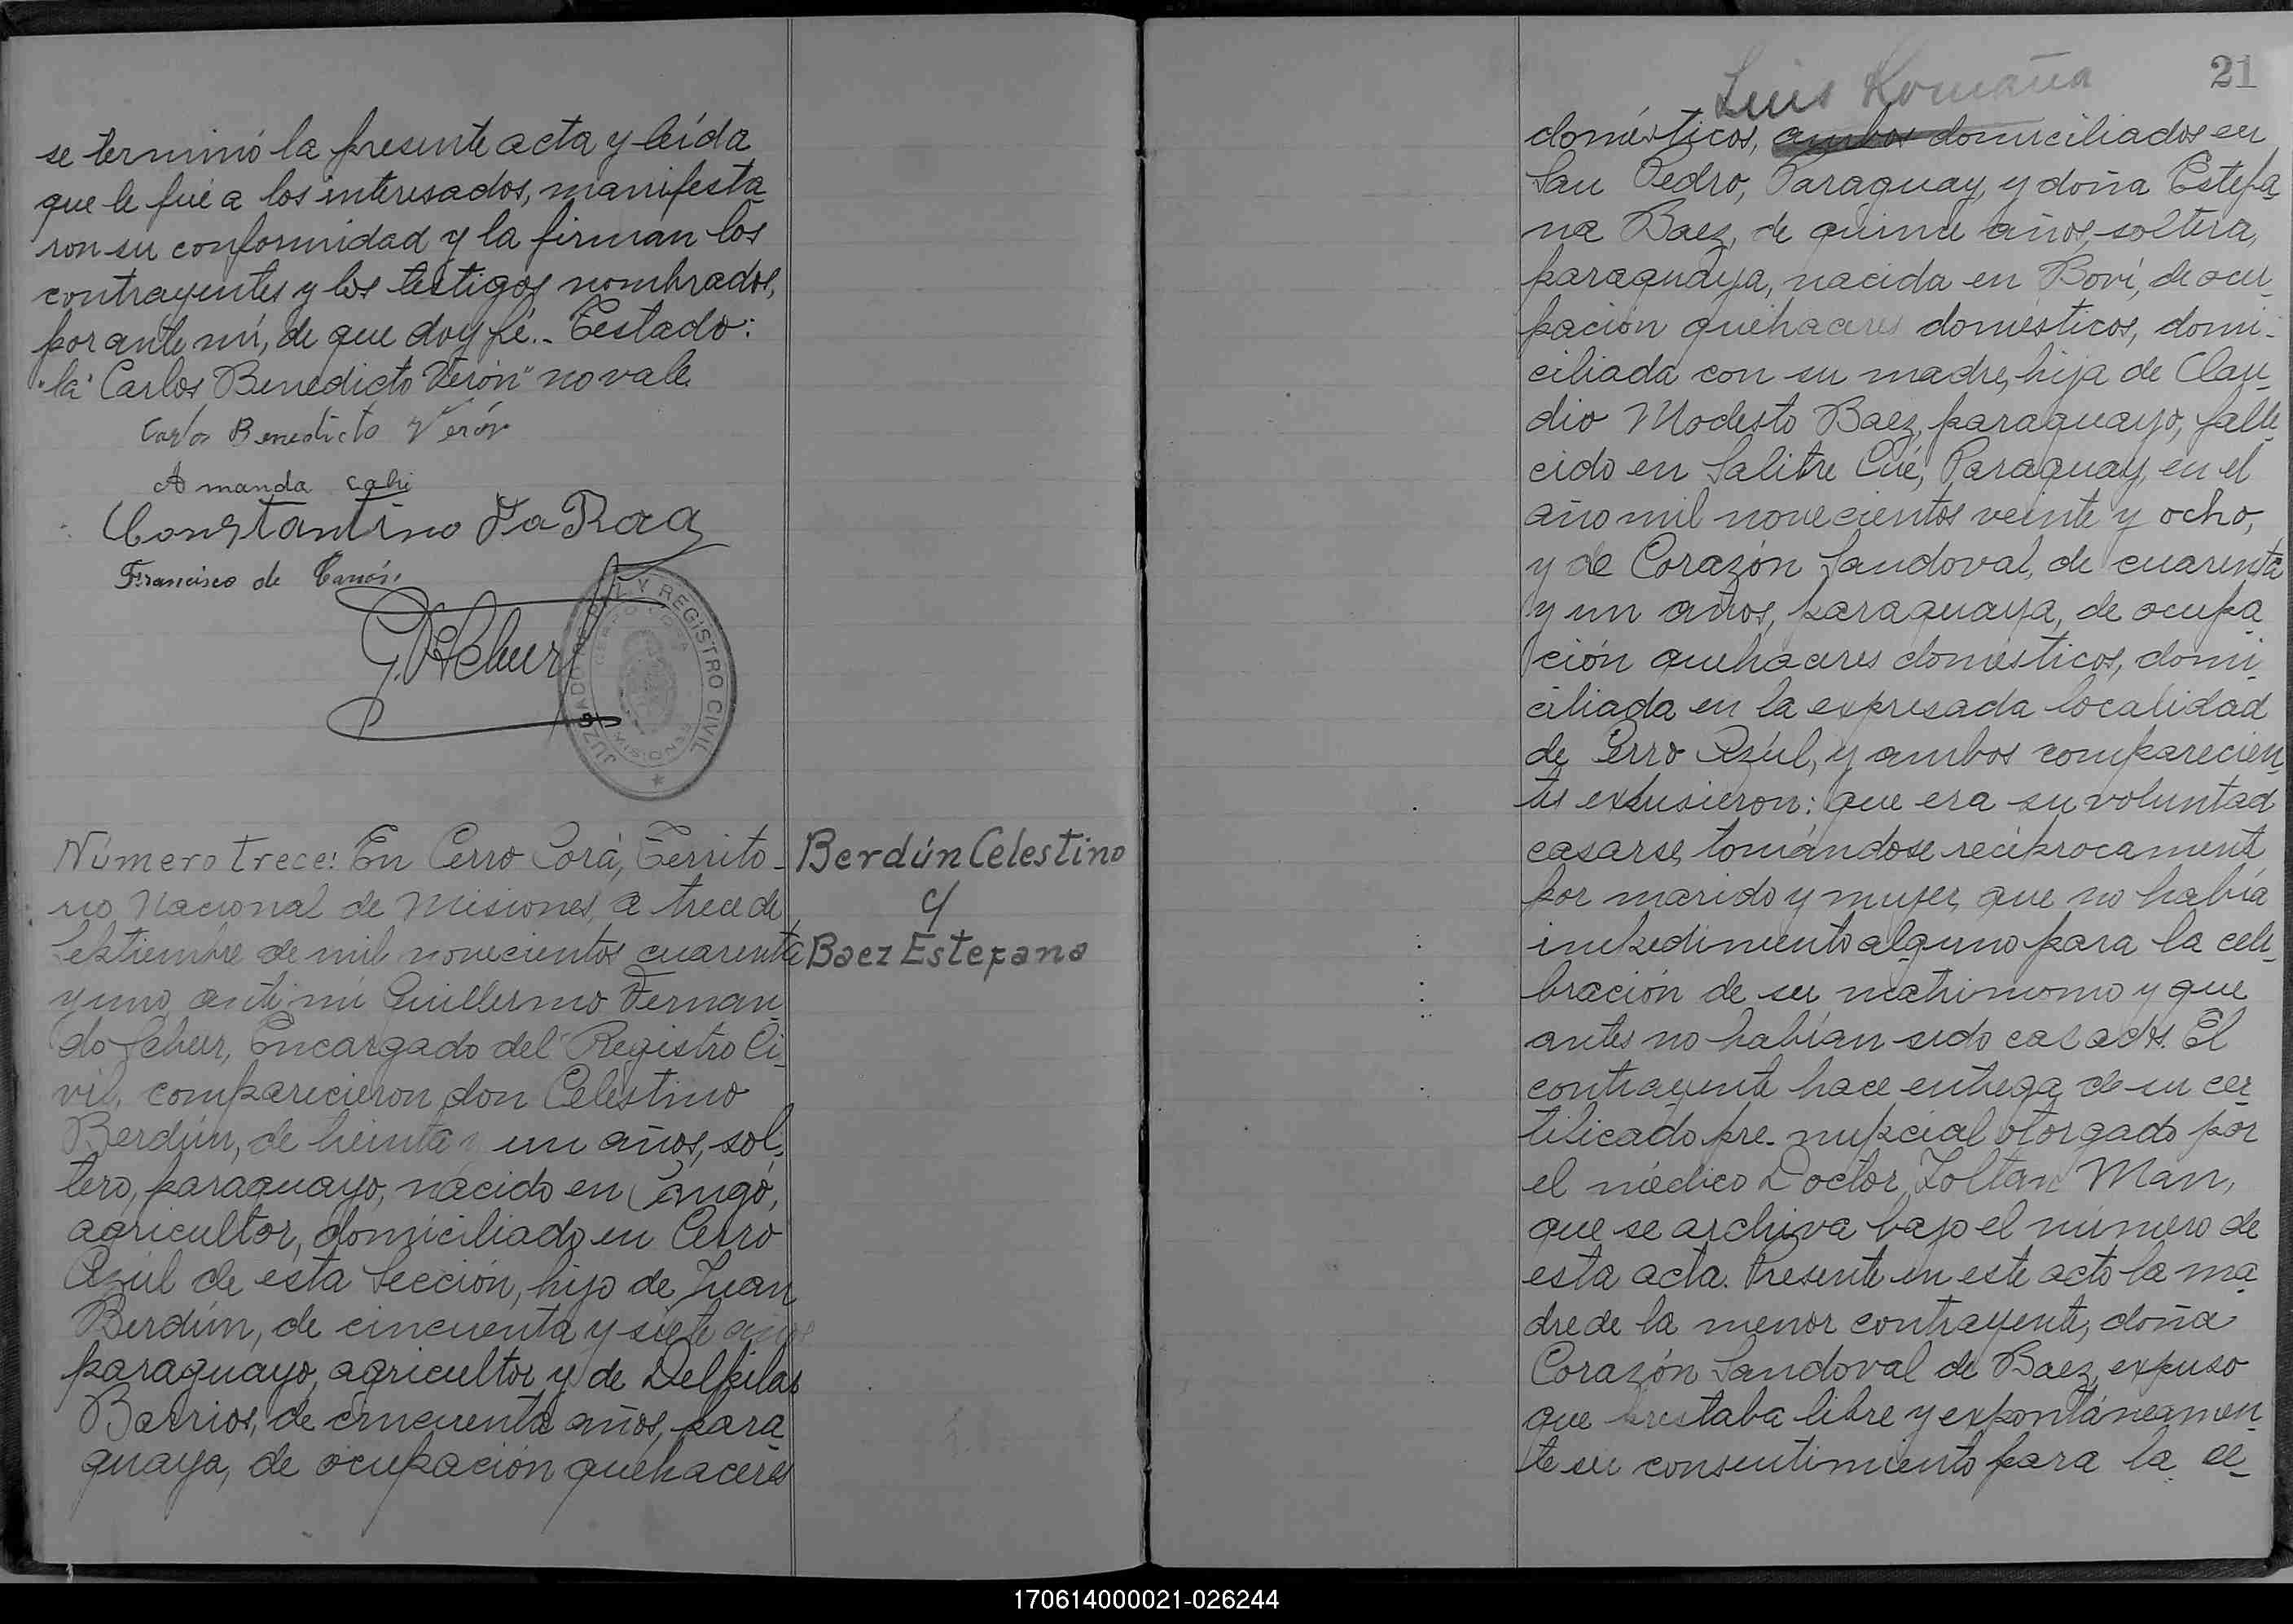 se terminó la presente acta y leída
que le fué a los interesados, manifesta_
ron su conformidad y la firman los
contrayentes y los testigos nombrados,
por ante mí, de que doy fé.- Testado:
"la" Carlos Benedicto Verón" no vale.
Carlos Benedicto Verón
Amanda
Constantino
Francisco de
JUZGADO DE PAZ Y REGISTRO CIVIL
CERRO CORA
MISIONES
Número trece: En Cerro Corá, Territo-
rio Nacional de Misiones, a trece de
Septiembre de mil novecientos cuarenta
y uno, ante mí Guillermo Fernan_
do Scheur, Encargado del Registro Ci_
vil, comparecieron don Celestino
Berdún, de treinta y un años, sol_
tero, paraguayo, nacido en Cangó,
agricultor, domiciliado en Cerro
Azúl de ésta Sección, hijo de Juan
Berdún, de cincuenta y siete años
paraguayo, agricultor y de Delpilar
Barrios, de cincuenta años, para_
guaya, de ocupación quehaceres
Berdún Celestino
c/
Baez Estefana
21
Luis Romaña
domésticos, ambos domiciliados en
San Pedro, Paraguay, y doña Estefa_
na Baez, de quince años, soltera,
paraguaya, nacida en Boví, de ocu_
pación quehaceres domésticos, domi_
ciliada con su madre, hija de Clau_
dio Modesto Baez, paraguayo, falle_
cido en Salitre Cué, Paraguay, en el
año mil novecientos veinte y ocho,
y de Corazón Sandoval, de cuarenta
y un años, paraguaya, de ocupa_
ción quehaceres domésticos, domi_
ciliada en la expresada localidad
de Cerro Azúl, y ambos comparecien_
tes expusieron: que era su voluntad
casarse, tomándose recíprocament
por marido y mujer, que no había
impedimento alguno para la cele_
bración de su matrimonio y que
antes no habían sido casados. El
contrayente hace entrega de su cer_
tificado pre-nupcial otorgado por
el médico Doctor Zoltan Man,
que se archiva bajo el número de
esta acta. Presente en este acto la ma_
dre de la menor contrayente, doña
Corazón Sandoval de Baez, expuso
que prestaba libre y expontáneamen_
te su consentimiento para la ce_
170614000021-026244